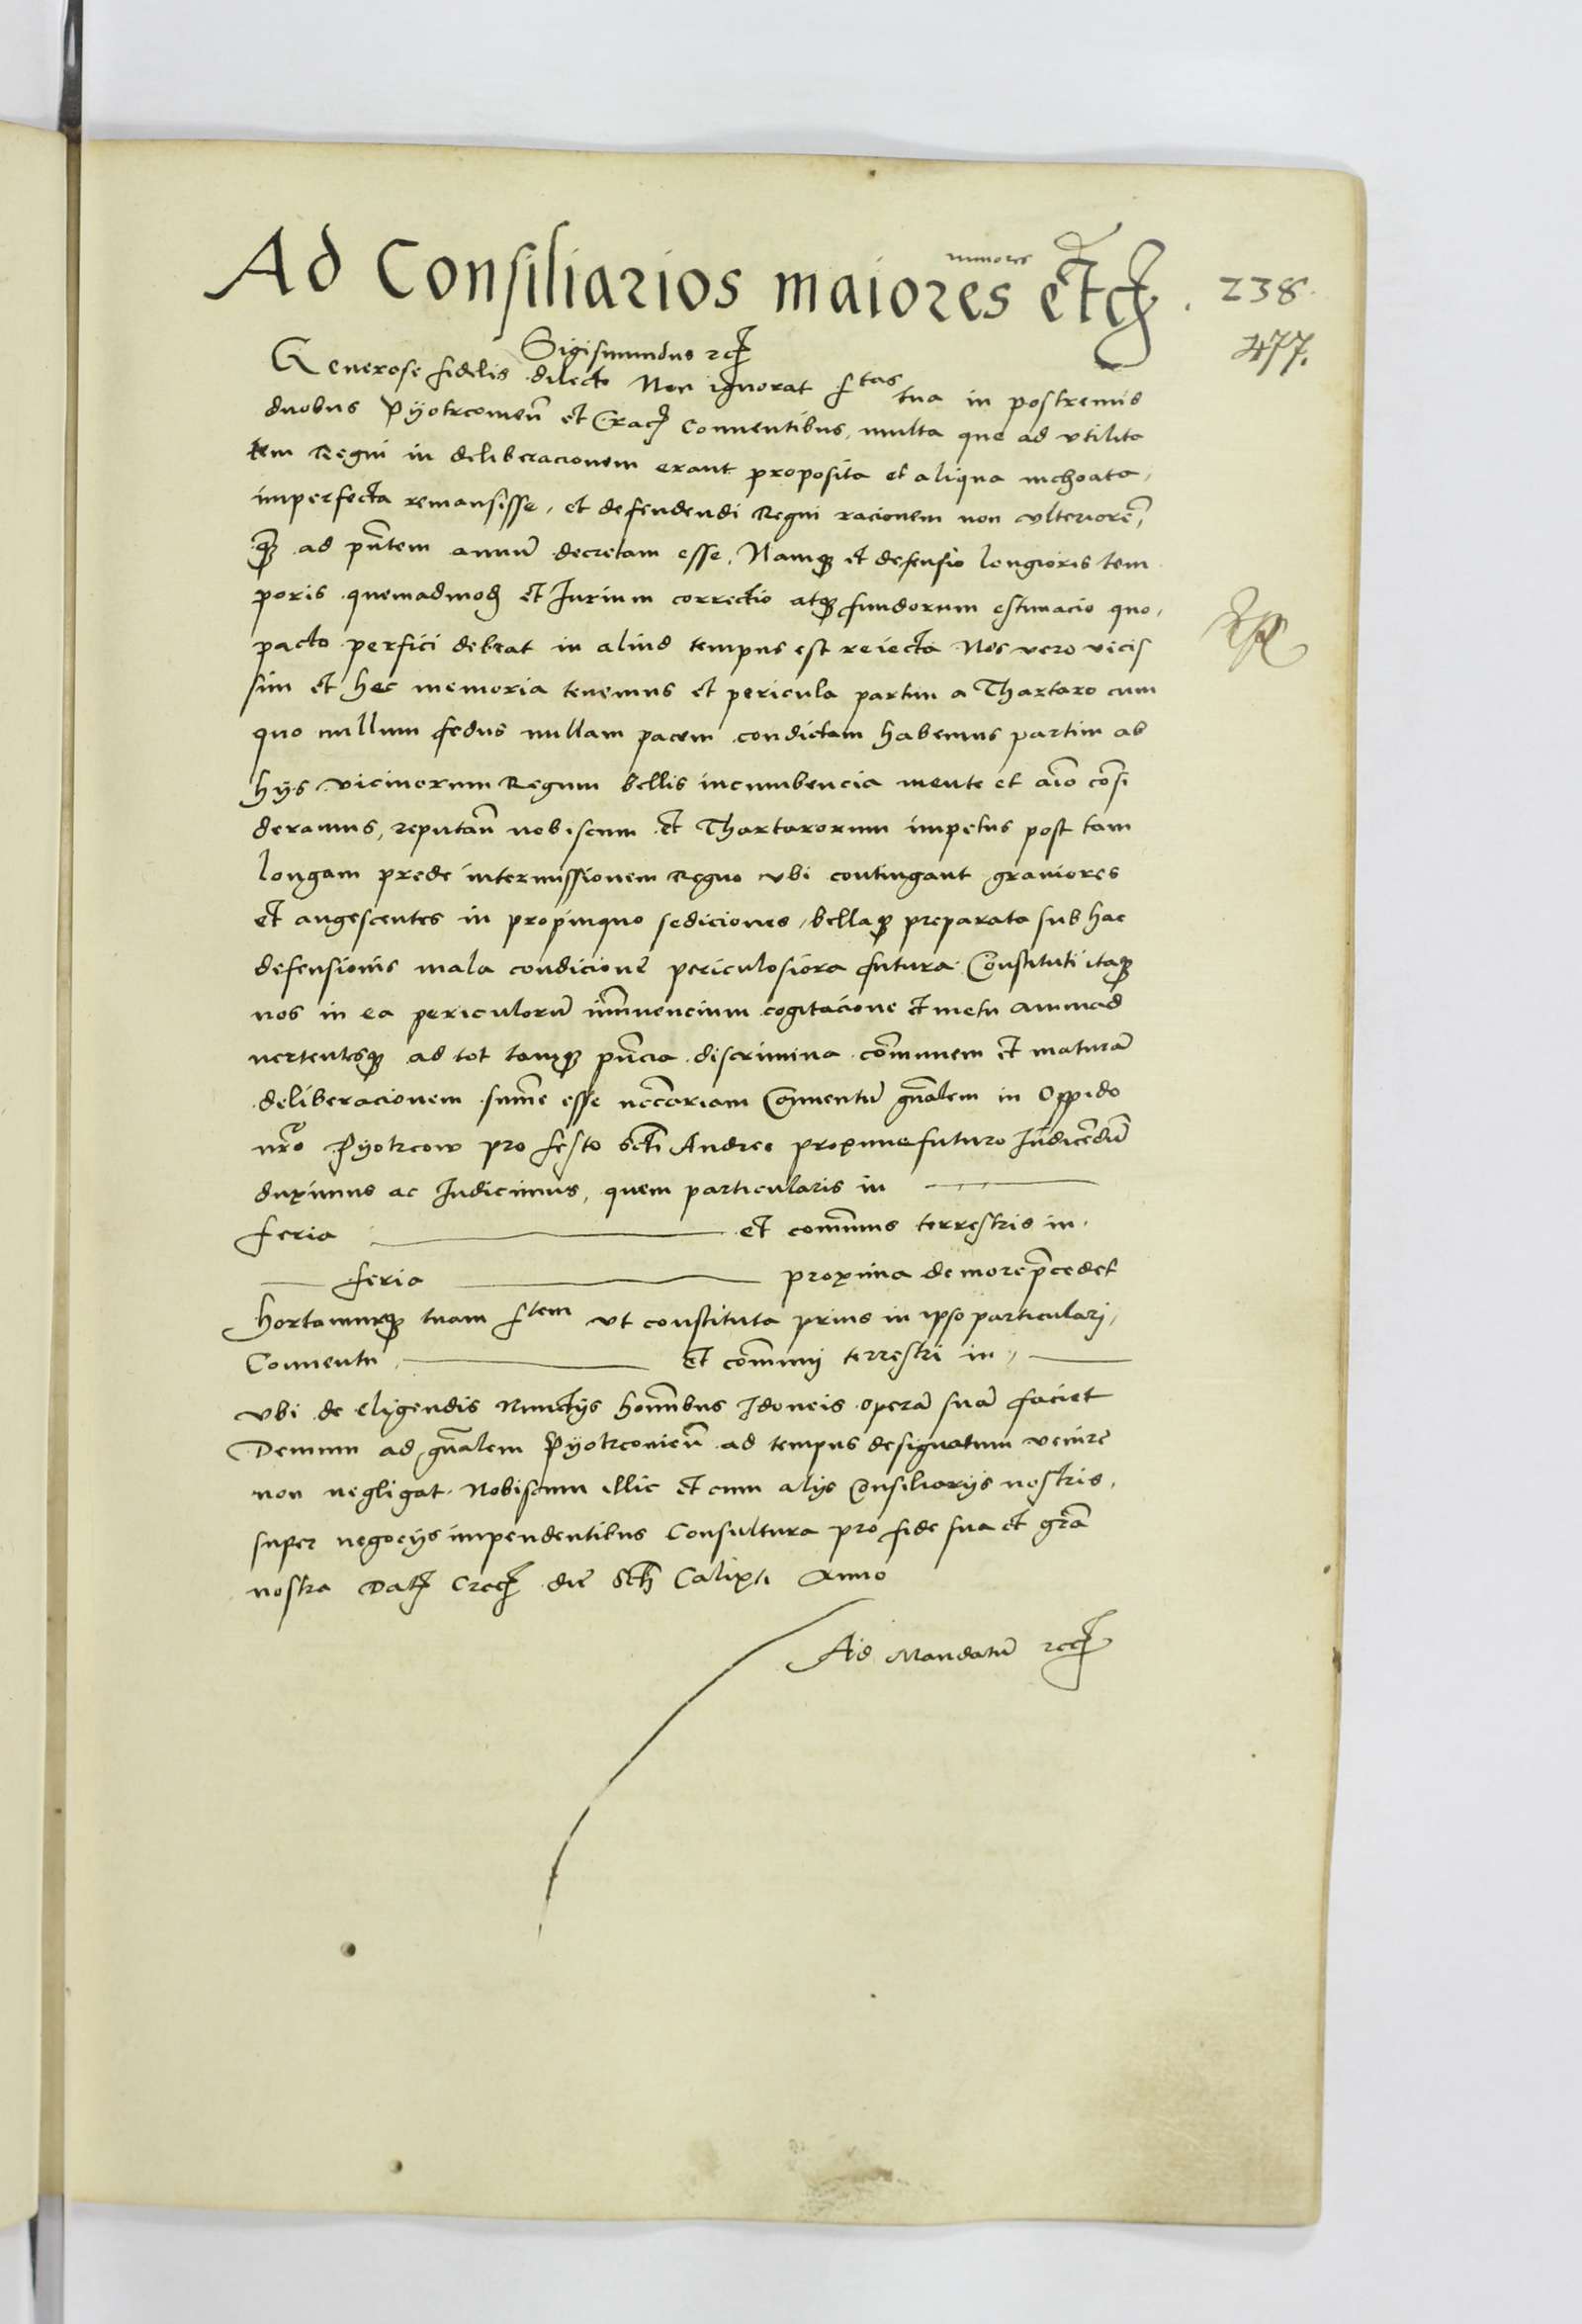 minores
Ad Consiliarios maiores etc̃ .
238.
477.
Sigismundus ꝛc̃
Generose fidelis dilecte Non ignorat f^tas tua in postremis
duobus Pyotrcowien̄ et Crac̃ Conuentibus, multa que ad vtilita
tem Regni in deliberacionem erant proposita et aliqua inchoata,
imperfecta remansisse, et defendendi Regni racionem non vlteriorē,
q̃ꝫ ad pn̄tem annū decretam esse. Namqꝫ et defensio longioris tem
poris quemadmodꝫ et Iurium correctio atqꝫ fundorum estimacio quo,
pacto perfici debeat in aliud tempus est reiecta Nos vero vicis
sim et hec memoria tenemus et pericula partim a Thartaro cum
quo nullum fedus nullam pacem condictam habemus partim ab
hys vicinorum Regum bellis incumbencia mente et aīo cōsi
deramus, reputan̄ nobiscum et Thartarorum impetus post tam
longam prede intermissionem Regno vbi contingant grauiores
et augescentes in propinquo sediciones, bellaqꝫ preparata sub hac
defensionis mala condicione periculosiora futura. Constituti itaqꝫ
nos in ea periculorū im̄inencium cogitacione et metu animad
uertentesqꝫ ad tot tamqꝫ pn̄cia discrimina com̄unem et maturā
deliberacionem sum̄e esse necc̄ariam Conuentū gn̄alem in Oppido
nr̄o Pyotrcow pro festo Scti Andree proxime futuro Indicendū
duximus ac Indicimus, quem particularis in
feria et com̄unis terrestris in
feria proxima de more p̄cedet
hortamurqꝫ tuam f^tem vt constituta prius in ipso particulari,
Conuentu et com̄uni terrestri in,
vbi de eligendis Nunctijs homībus Idoneis operā suā faciet
Demum ad gn̄alem Pyotrcouien̄ ad tempus designatum venire
non negligat. Nobiscum illic et cum alijs Consiliarijs nostris,
super negocijs impendentibus Consultura pro fide sua et grā
nostra Datꝫ Crac̃ die Scti Calixti Anno
Ad Mandatū ꝛc̃